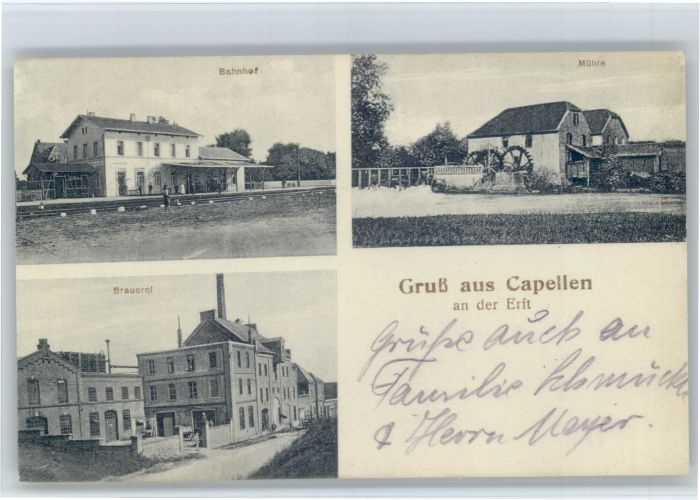 Bahnhof
Mühle
Brauerei
Gruß aus Capellen
an der Erft
Grüße auch an
Familie Schmücke
& Herrn Meyer.